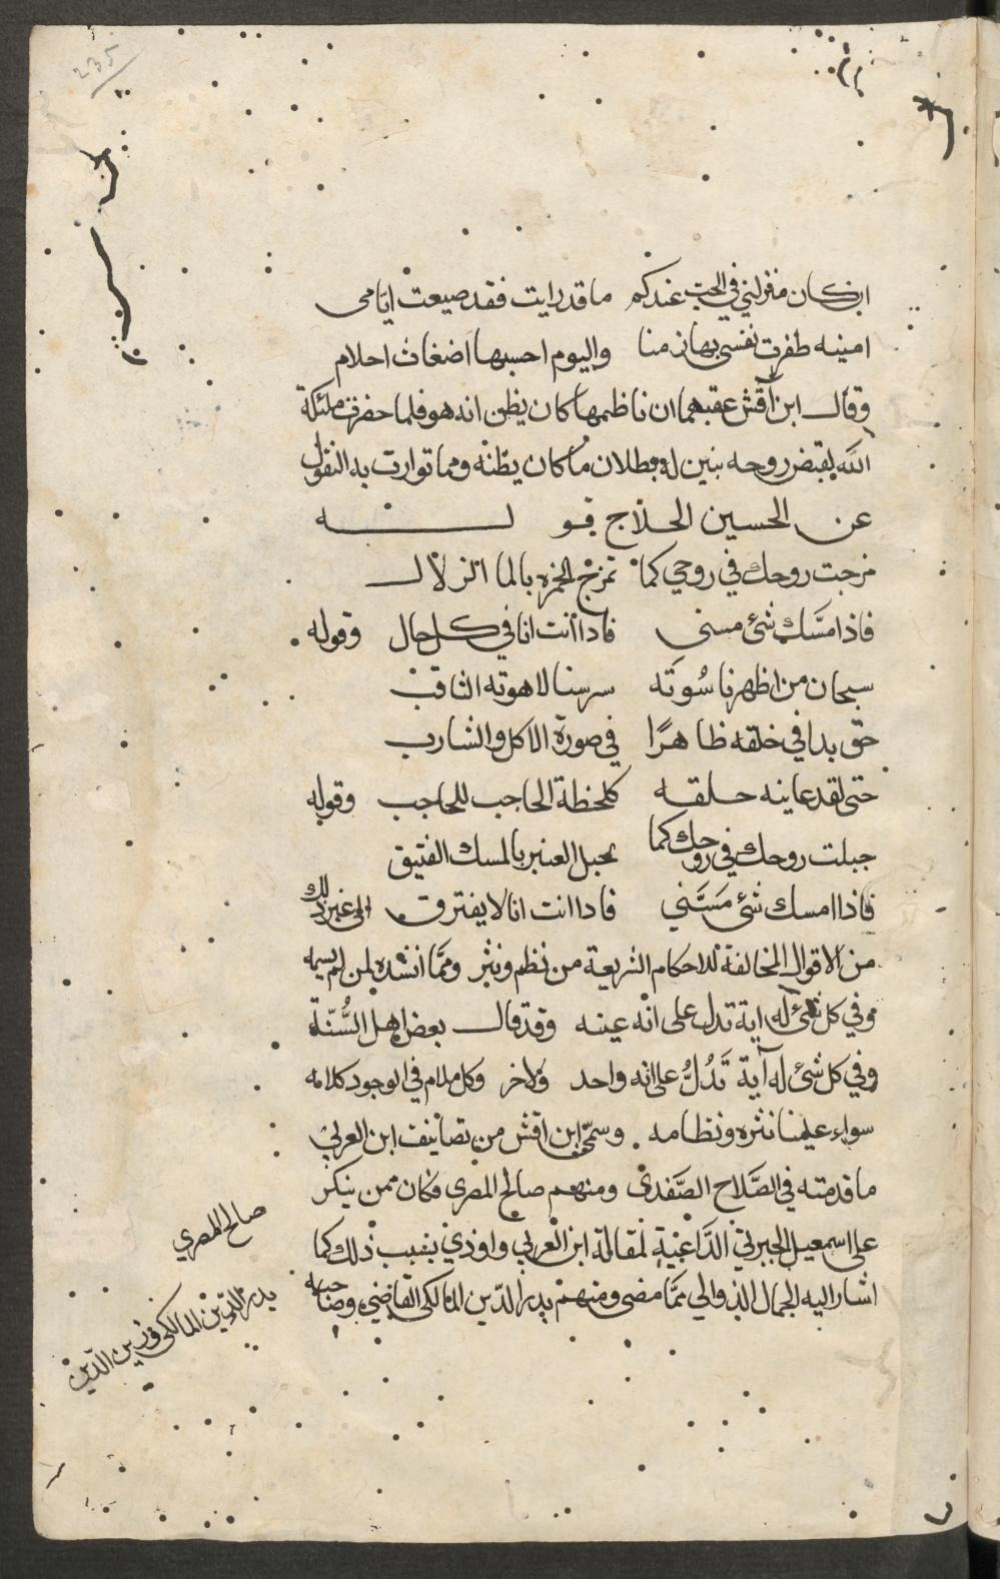 235
ان كان منزلتي في الحب عندكم ما قد رايت فقد ضيعت ايامي
امنيه ظفرت نفسي بها زمنا واليوم احسبها اضغاث احلام
وقال ابن اقش عقبهما ان ناظمها كان يظن انه هو فلما حضرت ملئكة
الله لقبض روحه تبين له بطلان ما كان يظنه ومما تواردت به النقول
عن الحسين الحلاج قوله
مزجت روحك في روحي كما تمزج الخمره بالما الزلال
فاذا مسَّك شئ مسني فاذا أنت انا في كل حال وقوله
سبحان من اظهر ناسُوتَه سر سنا لاهوته الثاقب
حتى بدا في خلقه ظاهرًا في صورة الاكل والشارب
حتى لقد عاينه خلقه كلحظة الحاجب للحاجب وقوله
جبلت روحك في روحك كما يجبل العنبر بالمسك الفتيق
فاذا امسك شئ مَسَّني فاذا انت انا لا يفترق الى غير ذلك
من الاقوال المخالفة لاحكام الشريعة من نظم ونثر ومما انشده لمن لم يسمه
وفي كل شئ له اية تدل على انه عينه وقد قال بعض اهل السُّنّة
وفي كل شئ له آية تَدُلُّ على انه واحد ولاخر وكل كلام في الوجود كلامه
سواء علينا نثره ونظامه وسمى ابن اقش من تصانيف ابن العربي
ما قدمته في الصَّلاح الصَّفدي ومنهم صالح المصري فكان ممن ينكر
على اسمعيل الجبرتي الدَّاعية لمقالة ابن العربي واوذي بسبب ذلك كما
اشار اليه الجمال الذوالي مما مضى ومنهم بدر الدّين المالكي القاضي وصاحبه
صالح المصري
بدر الدين المالكي وزين الدين